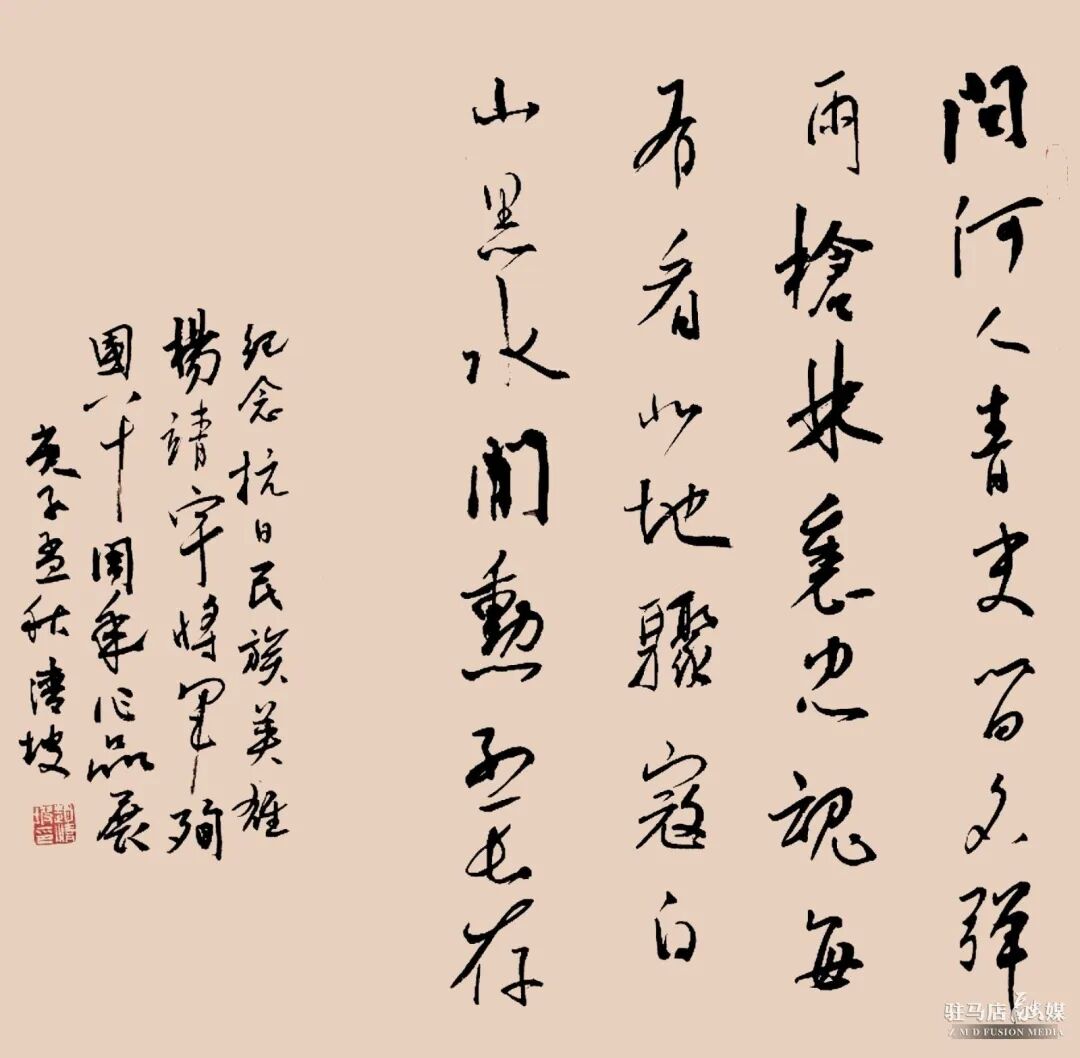 問何人青史留名彈
雨槍林忠魂每
有看此地驟寇白
山黑水間勳烈長存
紀念抗日民族英雄
楊靖宇將軍殉
國八十周年作品展
庚子孟秋清坡
趙清坡印
驻马店融媒
Z M D FUSION MEDIA